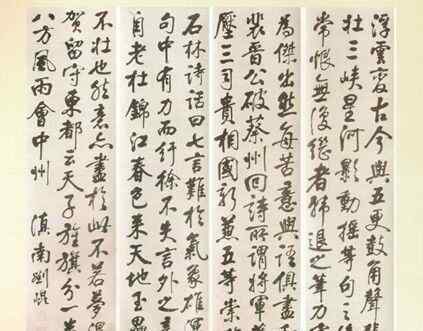 浮雲變古今與五更鼓角聲
壯三峽星河影動搖等句之
常恨無復繼者韓退之筆力
為傑出然每苦意與語俱盡
裴晉公破蔡州回詩所謂將軍
壓三司貴相國新兼五等崇
石林詩話曰七言難於氣象雄渾
句中有力而紆徐不失言外之
自老杜錦江春色來天地玉壘
不壯也然意亦盡於此不若夢得
賀留守東都云天子旌旗分一
八方風雨會中州 滇南劉